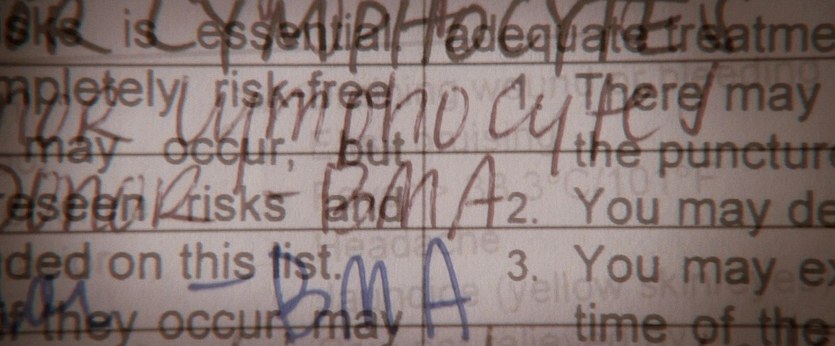 is essential. adequate treatme
LYMPHOCYTES
mpletely risk-free. 1. There may
Lymphocytes
may occur, but the puncture
Donor - BMA
eseen risks and 2. You may de
ded on this list. 3. You may ex
- BMA
they occur may time of the
Headache
(yellow skin